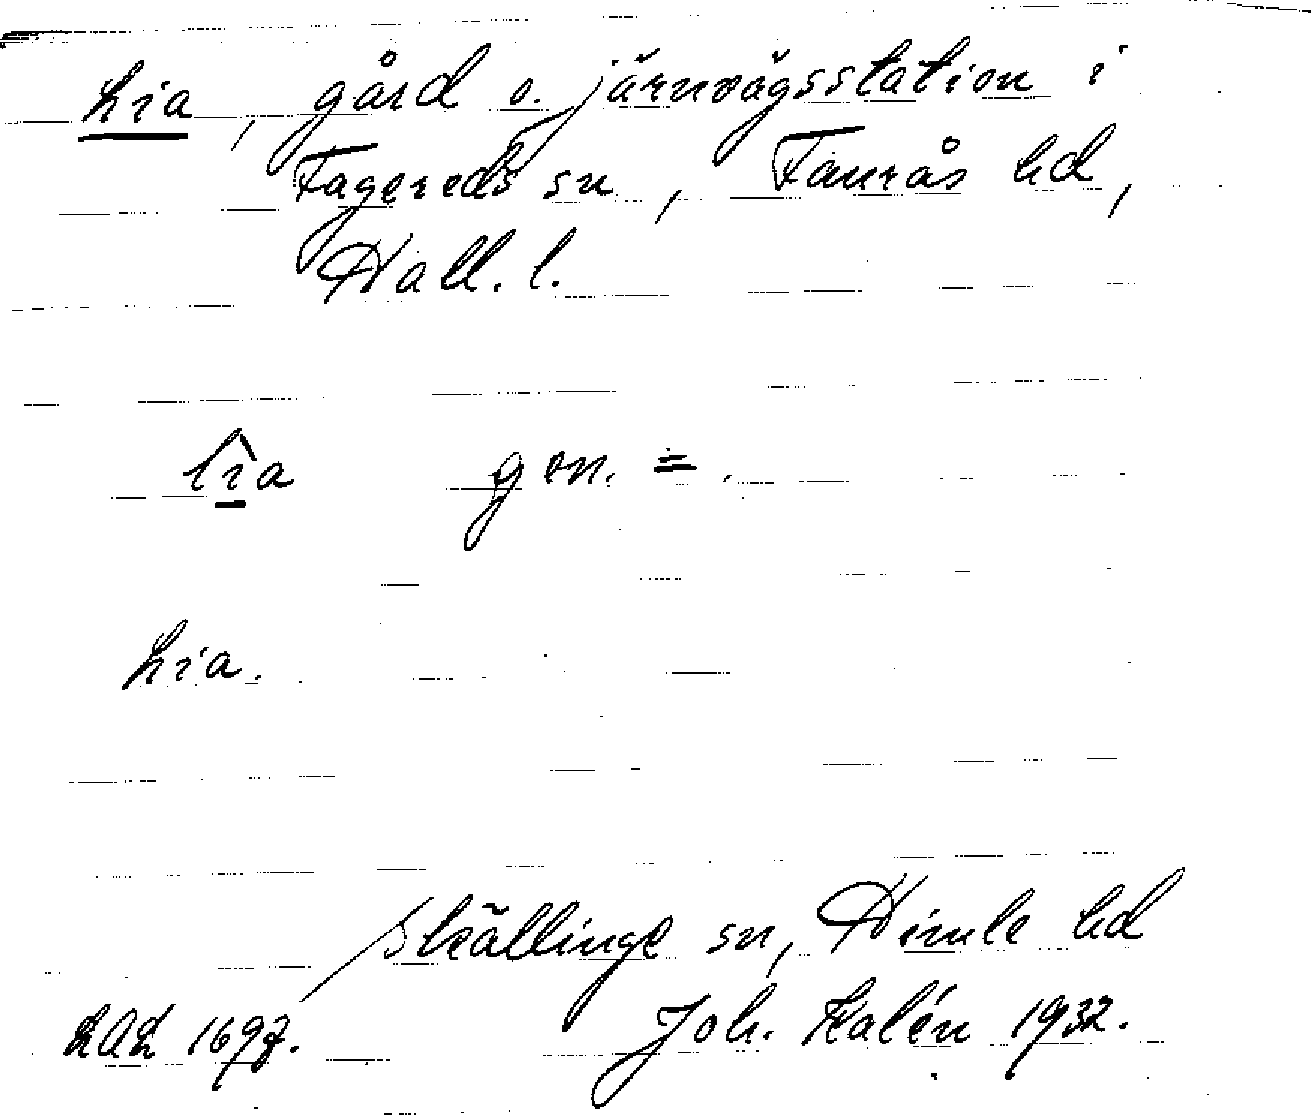 Lia, gård o. järnvägsstation i
Fagereds sn, Faurås hd,
Hall. l.
lîa gen. =.
Lia.
Skällinge sn, Himle hd
LAL 1697. Joh. Kalén 1932.